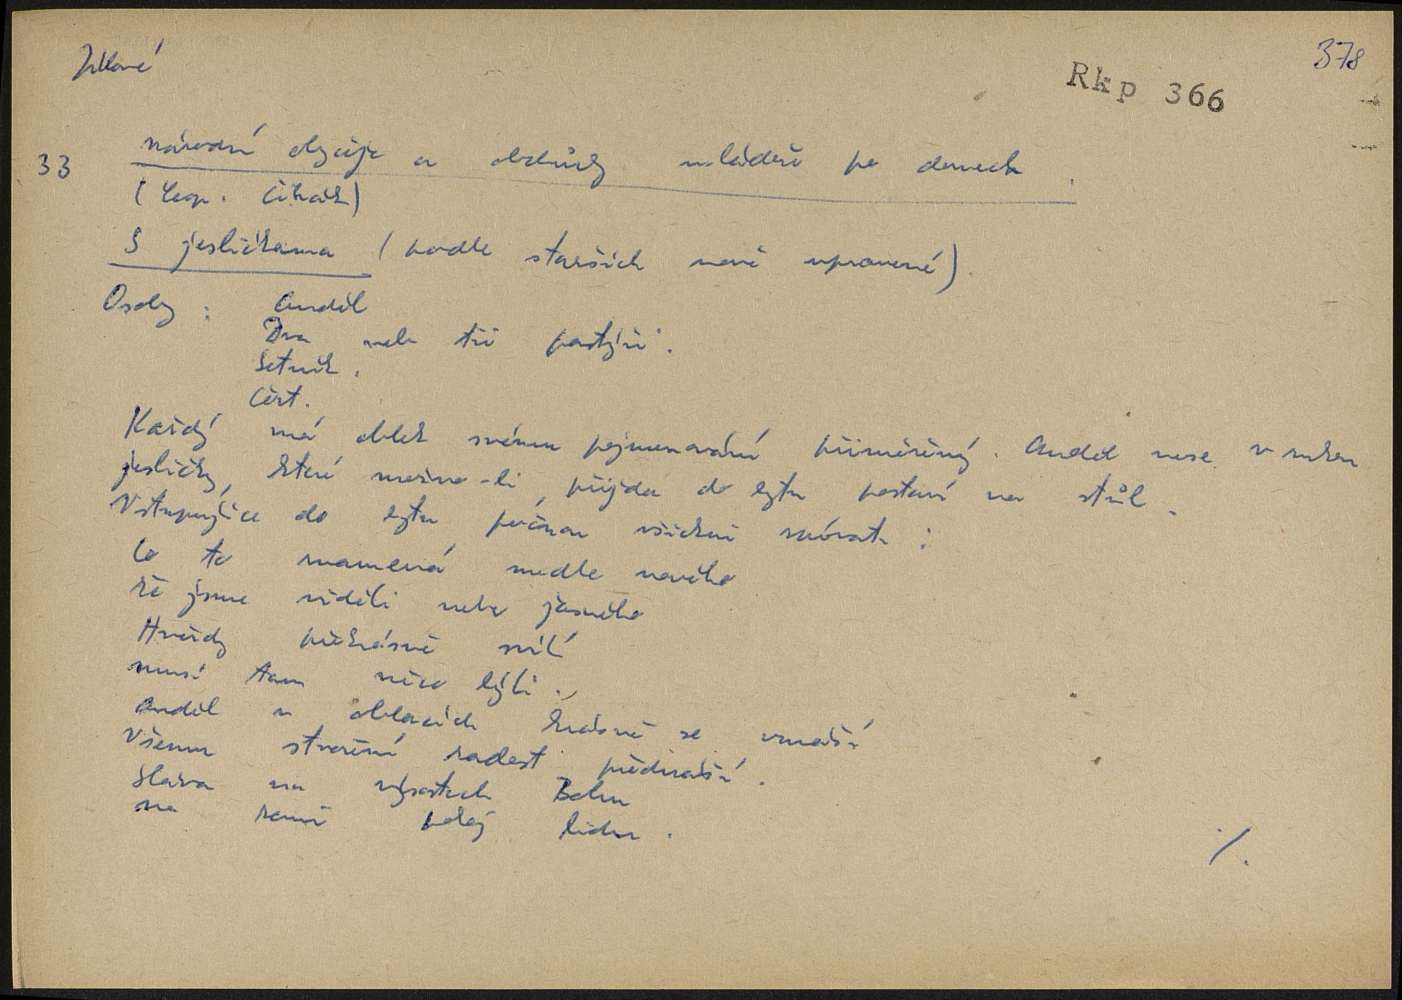 Jílové
378
Rkp 366
33
národní obyčeje a obchůzky mládeže po domech.
(Leop. Čihák)
S jesličkama (podle starších nově upravené).
Osoby: Anděl
Dva neb tři pastýři.
Setník.
Čert.
Každý má oblek svému pojmenování přiměřený. Anděl nese v rukou
jesličky, které možno-li, přijda do bytu postaví na stůl.
Vstupujíce do bytu počnou všichni zpívati:
Co to znamená medle nového
že jsme viděli nebe jasného
Hvězdy překrásně svítí
musí tam něco býti.
Anděl v oblacích krásně se vznáší
Všemu stvoření radost přednáší.
Sláva na výsostech Bohu
na zemi pokoj lidu.
./.